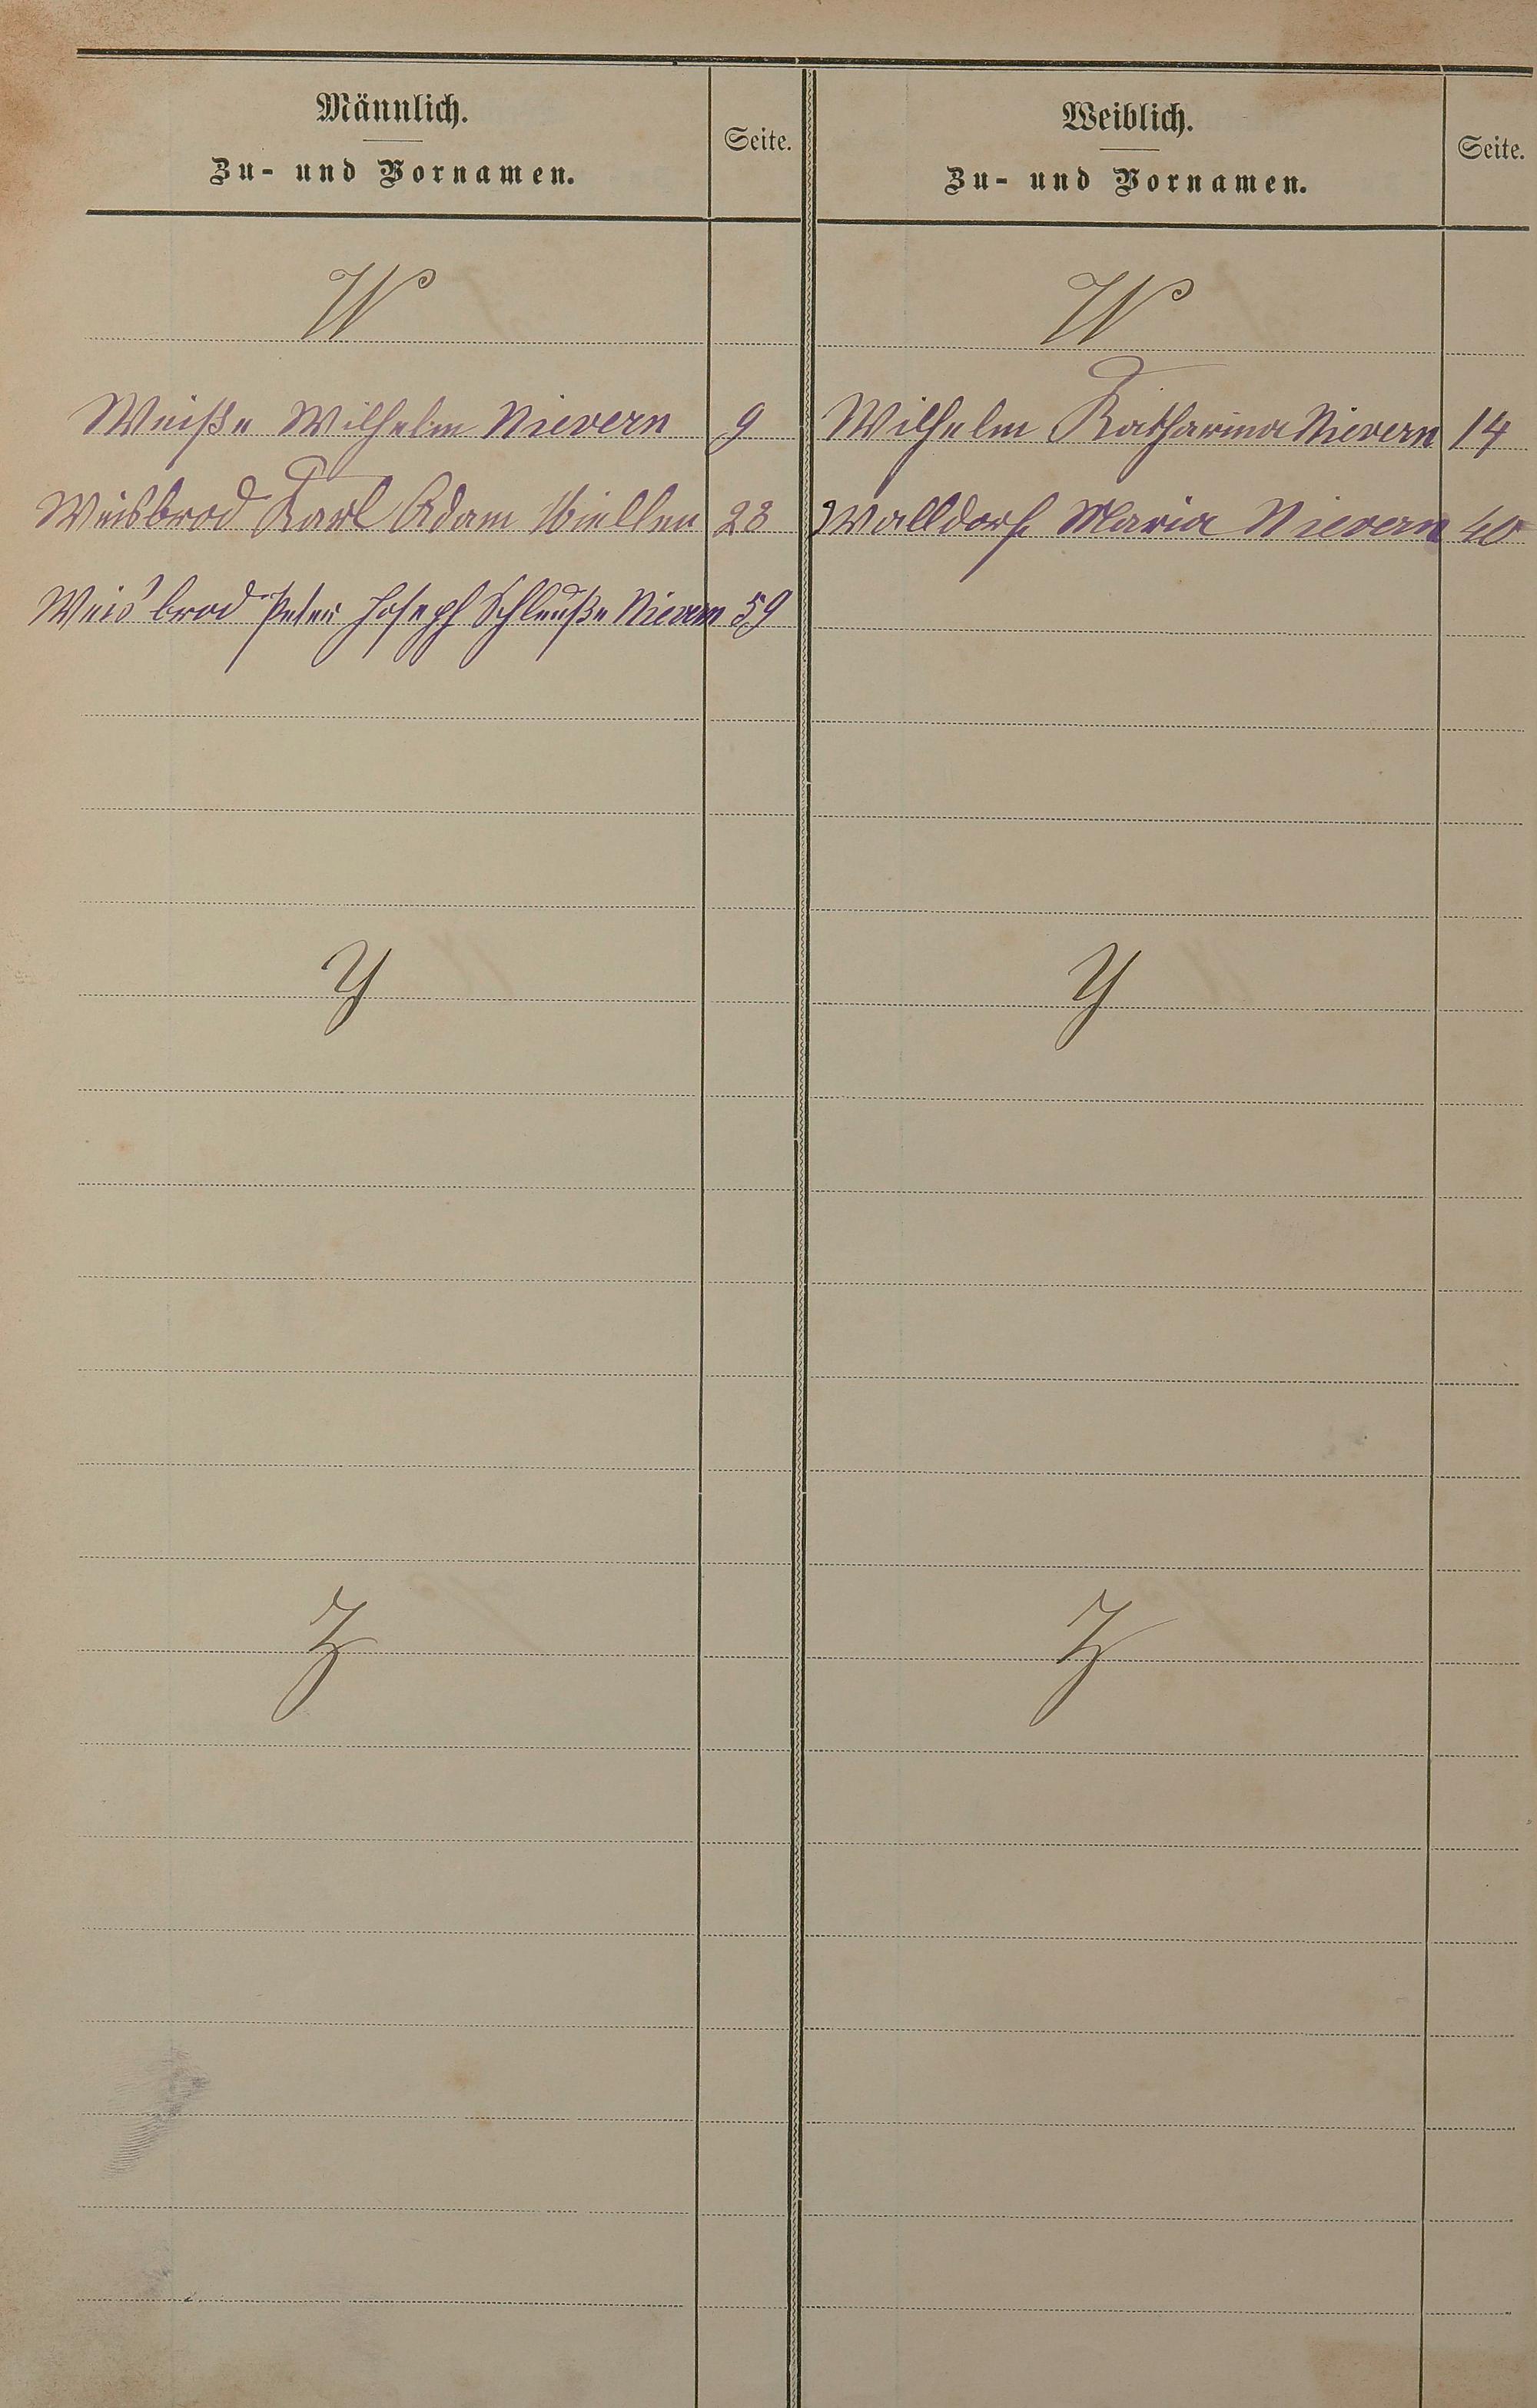 Männlich.
Zu- und Vornamen.
Seite.
Weiblich.
Zu- und Vornamen.
Seite.
W
Weiße Wilhelm Nievern 9
Weisbrod Karl Adam Miellen 28
Weisbrod Peter Joseph Schleuße Nievern 59
Y
Z
W
Wilhelm Katharina Nievern 14
Walldorf Maria Nievern 40
Y
Z